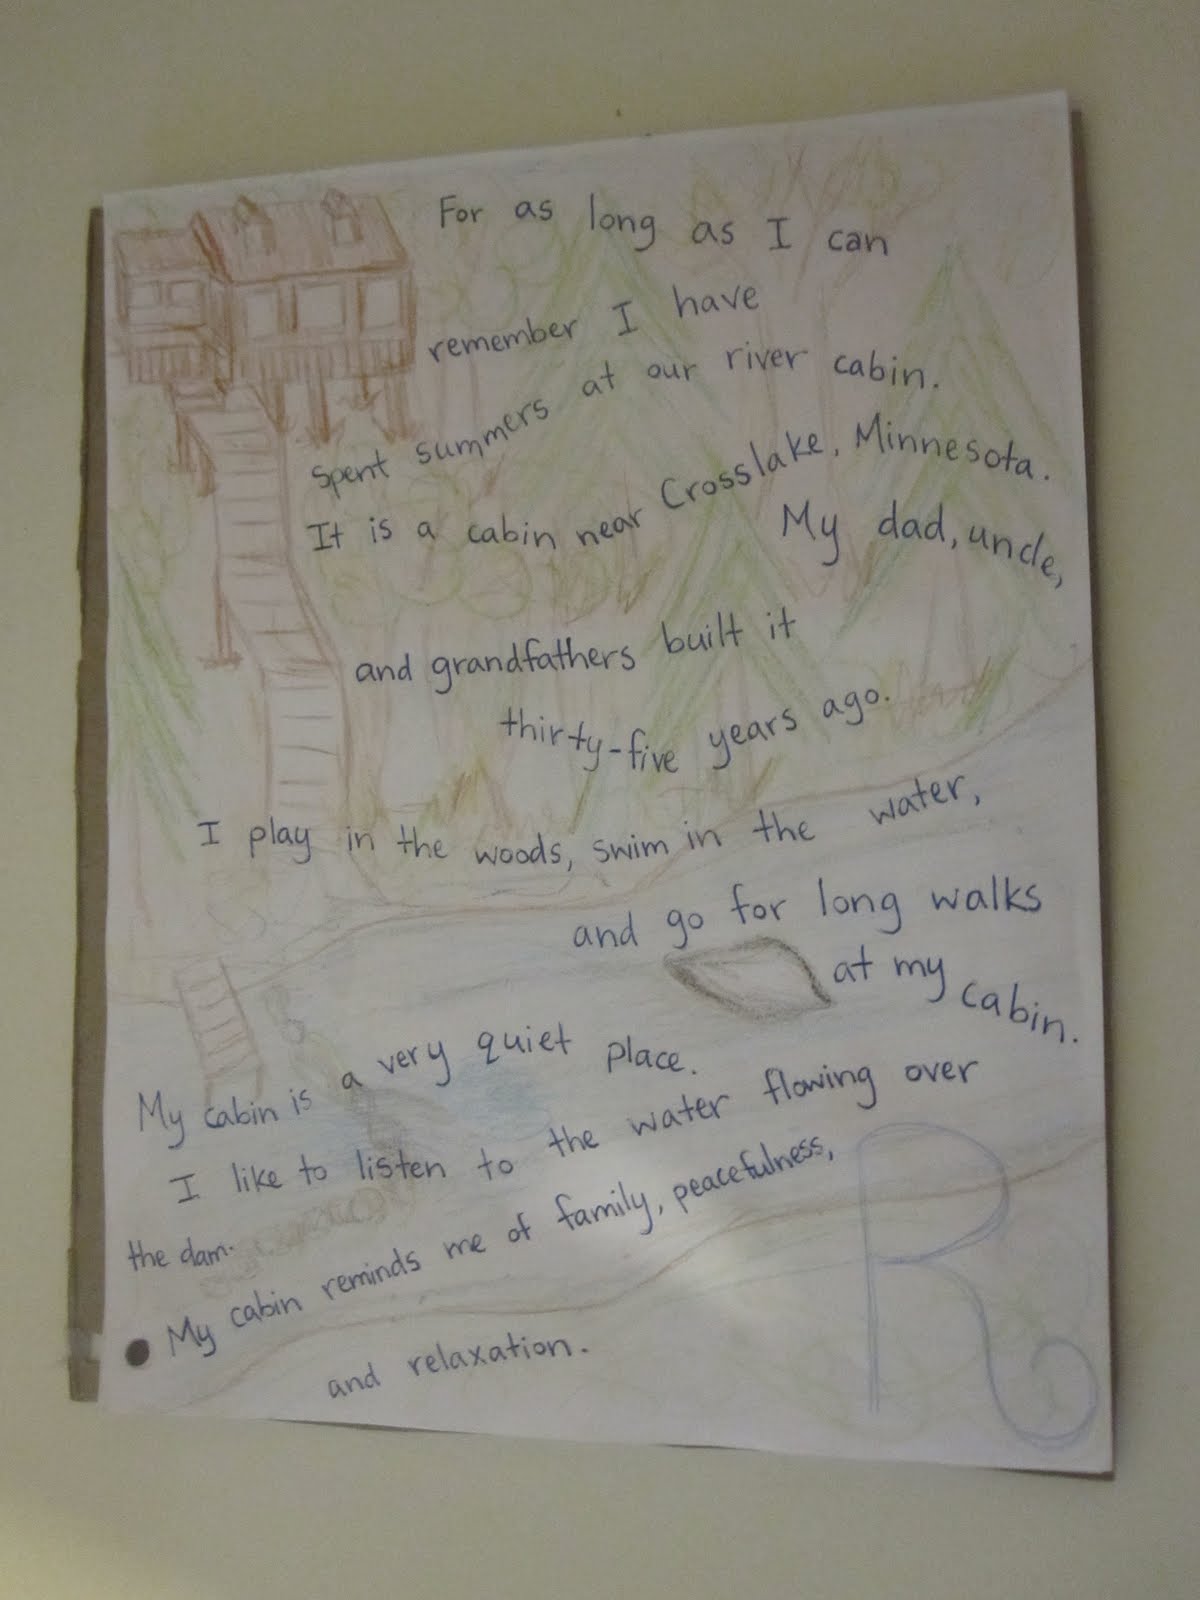 For as long as I can
remember I have
spent summers at our river cabin.
It is a cabin near Crosslake, Minnesota.
My dad, uncle,
and grandfathers built it
thirty-five years ago.
I play in the woods, swim in the water,
and go for long walks
at my cabin.
My cabin is a very quiet place.
I like to listen to the water flowing over
the dam.
My cabin reminds me of family, peacefulness,
and relaxation.
R